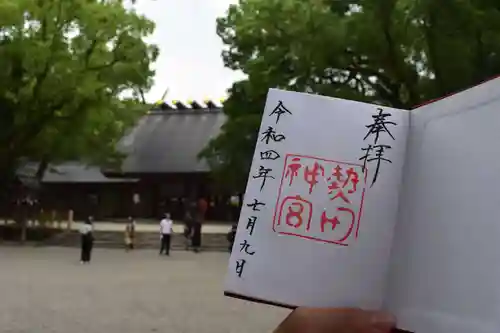 奉拝
熱田
神宮
令和四年 七月九日